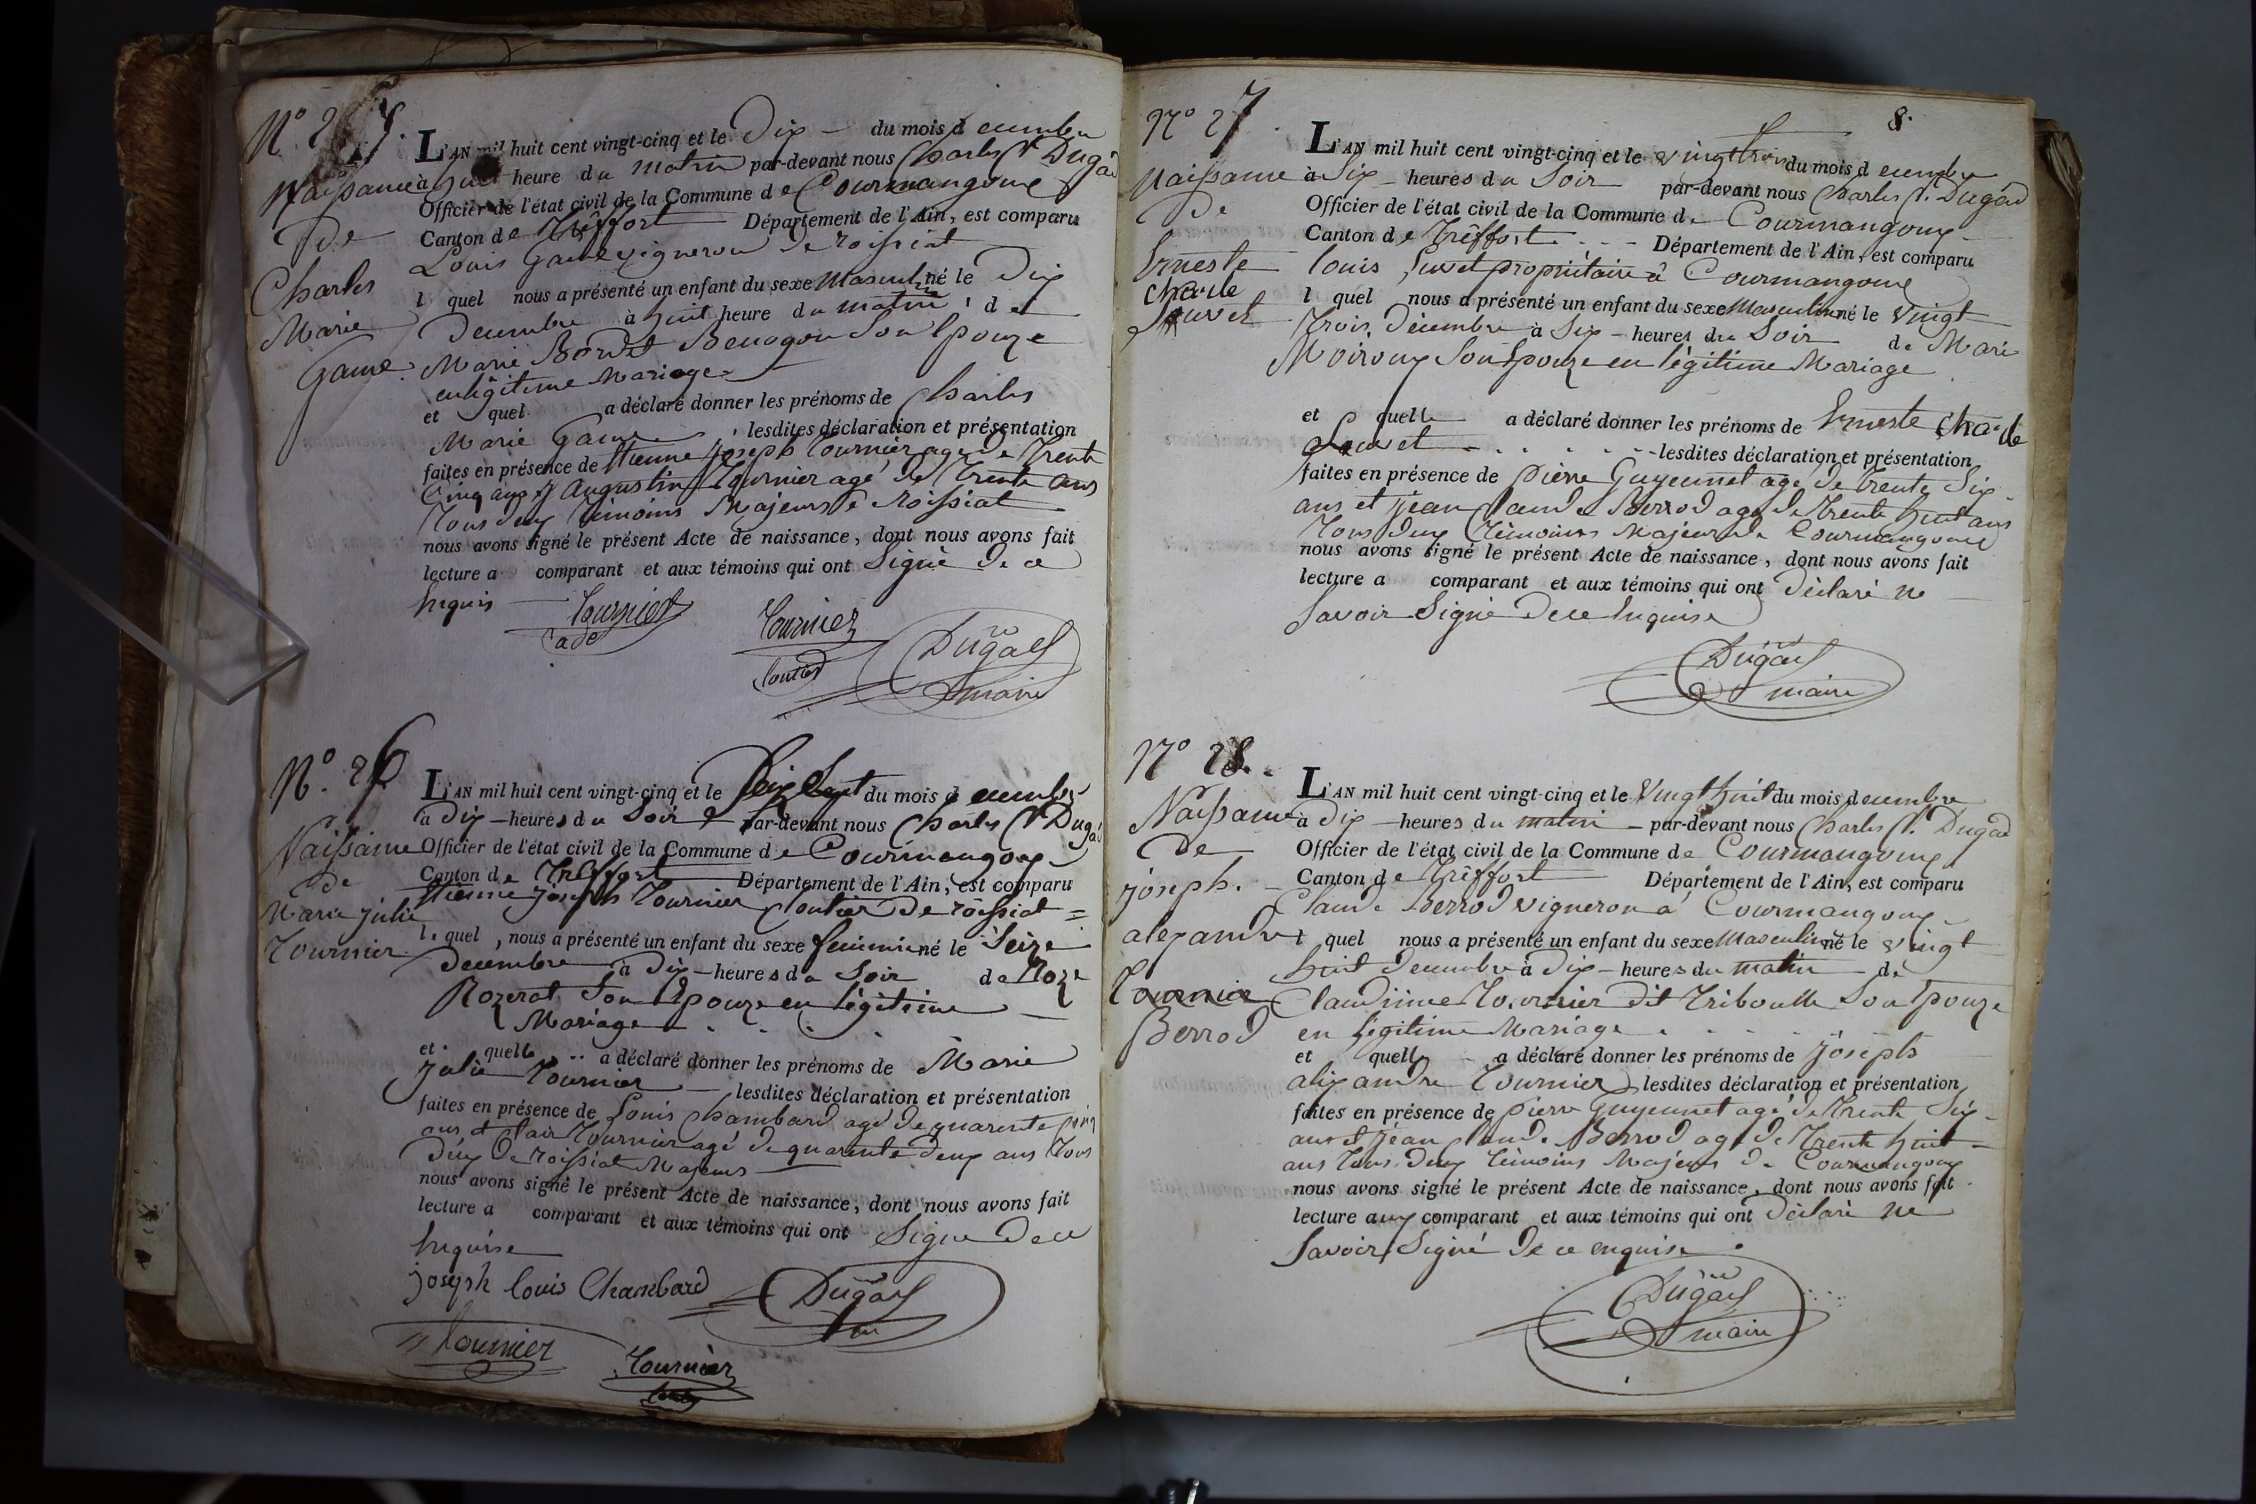 N.° 25.
Naissance
de
Charles
Marie
Game
L'AN mil huit cent vingt-cinq et le Dix du mois d ecembre
à huit heure du matin par-devant nous Charles Dugad
Officier de l'état civil de la Commune de Courmangoux
Canton de Tréffort Département de l'Ain, est comparu
Louis Game vigneron de roissiat
l quel nous a présenté un enfant du sexe Masculin né le Dix
Decembre à huit heure du matin de
Marie Bordet son Epouze
en légitime Mariage
et quel a déclaré donner les prénoms de Charles
Marie Game lesdites déclaration et présentation
faites en présence de Etienne joseph Tournier agé de Trente
Cinq ans & Augustin Tournier agé de Trente ans
Tous deux Témoins Majeurs de roissiat
nous avons signé le présent Acte de naissance, dont nous avons fait
lecture a comparant et aux témoins qui ont Signé De ce
Enquis
Tournier
Tournier
Dugad
maire
N.° 26
Naissance
de
Marie julie
Tournier
L'AN mil huit cent vingt-cinq et le Dix Sept du mois d ecembre
à Dix heures du Soir par-devant nous Charles Dugad
Officier de l'état civil de la Commune de Courmangoux
Canton de Tréffort Département de l'Ain, est comparu
Etienne joseph Tournier cloutier de roissiat
le quel, nous a présenté un enfant du sexe feminin né le Seize
Decembre à Dix heures du Soir de Roze
Rozerat Son Epouze en légitime
Mariage
et quelle a déclaré donner les prénoms de Marie
Julie Tournier lesdites déclaration et présentation
faites en présence de Louis Chambard agé de quarente cinq
ans et Clair Tournier agé de quarente deux ans Tous
Deux De roissiat Majeurs
nous avons signé le présent Acte de naissance, dont nous avons fait
lecture a comparant et aux témoins qui ont Signé De ce
Enquise
joseph louis Chambard
Dugad
Tournier
Tournier
8.
N° 27
Naissance
De
Erneste
Charle
Louvet
L'AN mil huit cent vingt-cinq et le vingt trois du mois d ecembre
à Six heures du Soir par-devant nous Charles Dugad
Officier de l'état civil de la Commune de Courmangoux
Canton de Tréffort Département de l'Ain, est comparu
louis propriétaire à Courmangoux
l quel nous a présenté un enfant du sexe Masculin né le Vingt
Trois Décembre à Six heures du Soir de Marie
Moiroux Son Epouze en légitime Mariage
et quelle a déclaré donner les prénoms de Erneste Charle
lesdites déclaration et présentation
faites en présence de pierre Guyennet agé de Trente Six
ans et jean Claude Berrod agé de Trente huit ans
Tous deux Témoins Majeurs de Courmangoux
nous avons signé le présent Acte de naissance, dont nous avons fait
lecture a comparant et aux témoins qui ont Déclaré ne
Savoir Signé De ce Enquise
Dugad
maire
N° 28.
Naissance
De
joseph
alexandre
Tournier
Berrod
L'AN mil huit cent vingt-cinq et le Vingt huit du mois d ecembre
à Dix heures du matin par-devant nous Charles Dugad
Officier de l'état civil de la Commune de Courmangoux
Canton de Tréffort Département de l'Ain, est comparu
Claude Berrod vigneron à Courmangoux
l quel nous a présenté un enfant du sexe Masculin né le vingt
huit Decembre à Dix heures du matin de
Claudiine Tournier dit Triboulle Son Epouze
en légitime Mariage
et quelle a déclaré donner les prénoms de joseph
alixandre Tournier lesdites déclaration et présentation
faites en présence de pierre Guyennet agé de Trente Six
ans et jean Claude Berrod agé de Trente huit
ans Tous deux Témoins Majeurs de Courmangoux
nous avons signé le présent Acte de naissance, dont nous avons fait
lecture aux comparant et aux témoins qui ont Déclaré ne
Savoir Signé De ce enquise
Dugad
maire